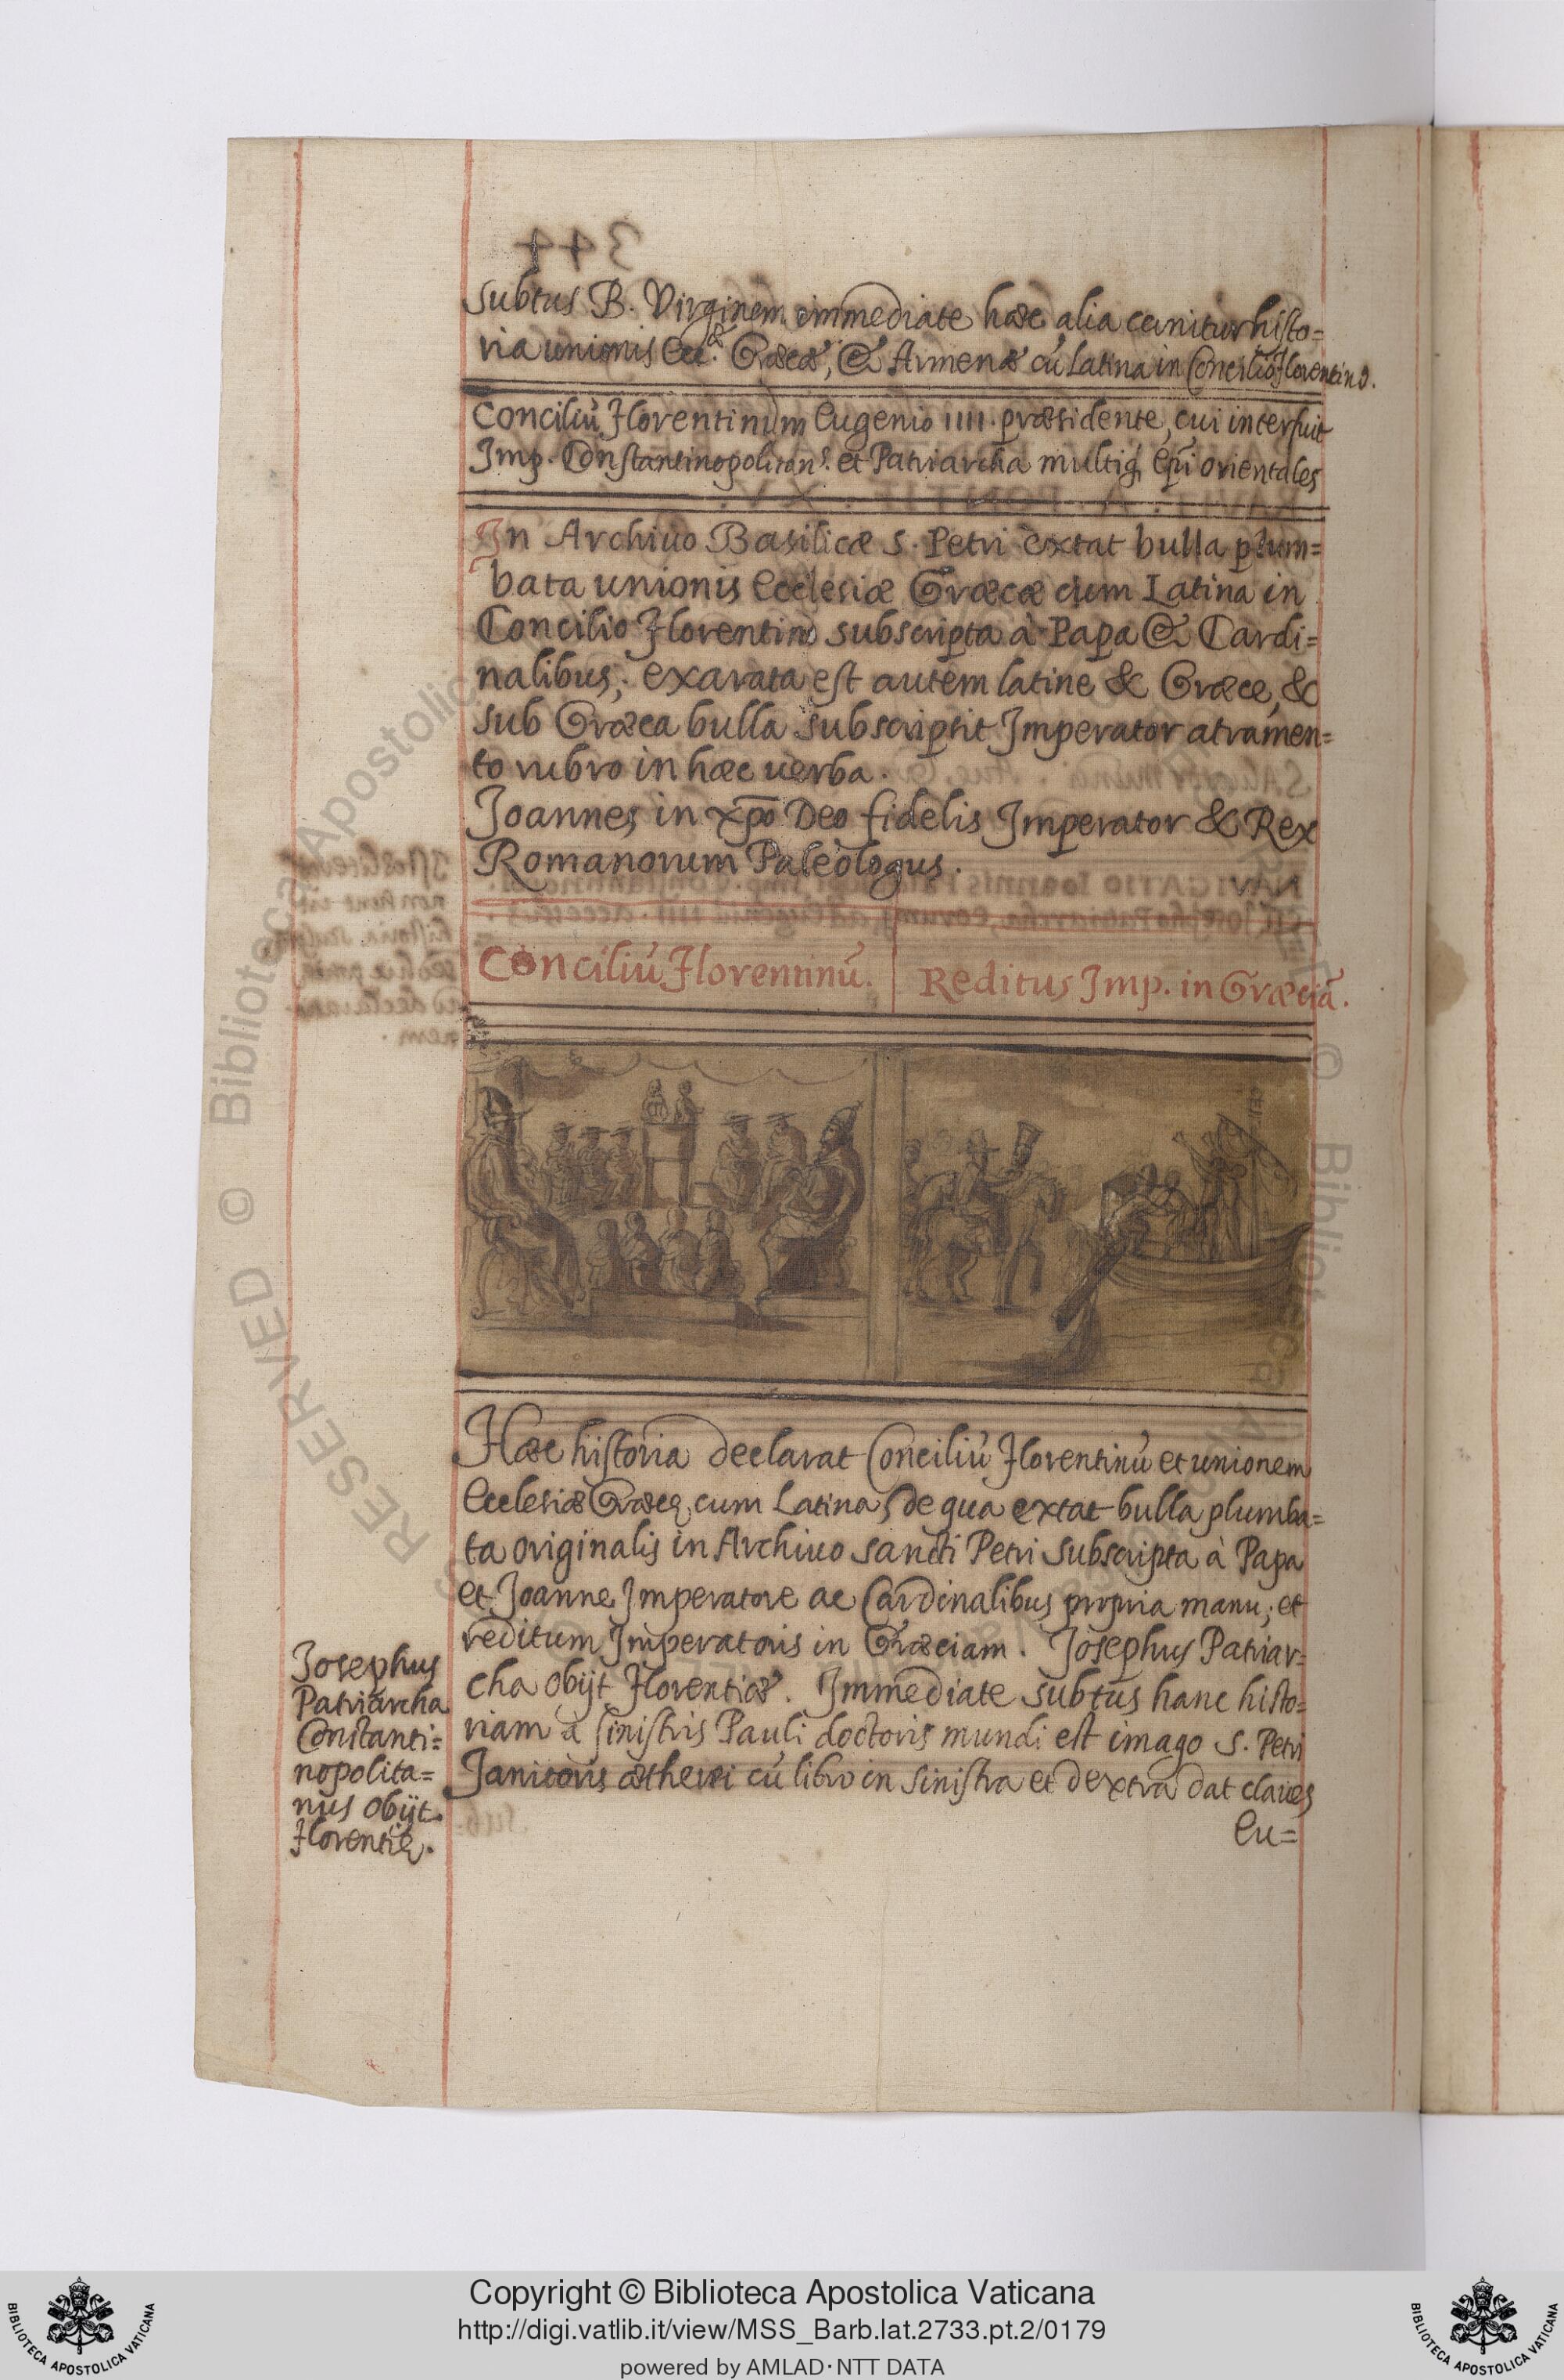 Subtus B. Virginem immediate hæc alia cernitur histo=
ria unionis Eccl.æ Græcæ, & Armenæ cũ Latina in Concilio Florentino.
Conciliũ Florentinum Eugenio IIII. præsidente, cui interfuit
Imp. Constantinopolitanꝰ. et Patriarcha multiq; Epĩ orientales
In Archiuo Basilicæ S. Petri extat bulla plum=
bata unionis Ecclesiæ Græcæ cum Latina in
Concilio Florentino subscripta à Papa & Cardi=
nalibus; exarata est autem latine & Græce, &
sub Græca bulla subscripsit Imperator atramen=
to rubro in hæc uerba.
Joannes in xp̃o Deo fidelis Imperator & Rex
Romanorum Paleologus.
Conciliũ Florentinũ. Reditus Imp. in Græciã.
Hæc historia declarat Conciliũ Florentinũ et unionem
Ecclesiæ Græcę cum Latina, de qua extat bulla plumba=
ta originalis in Archiuo sancti Petri subscripta à Papa
et Joanne Imperatore ac Cardinalibus propria manu; et
reditum Imperatoris in Græciam. Josephus Patriar=
cha obijt Florentiæ. Immediate subtus hanc histo=
riam à sinistris Pauli doctoris mundi est imago S. Petri
Janitoris ætherei cũ libro in sinistra et dextra dat claues
Eu=
Josephus
Patriarcha
Constanti=
nopolita=
nus obijt
Florentię.
RESERVED © Biblioteca Apostolica
Copyright © Biblioteca Apostolica Vaticana
http://digi.vatlib.it/view/MSS_Barb.lat.2733.pt.2/0179
powered by AMLAD·NTT DATA
BIBLIOTECA APOSTOLICA VATICANA
BIBLIOTECA APOSTOLICA VATICANA